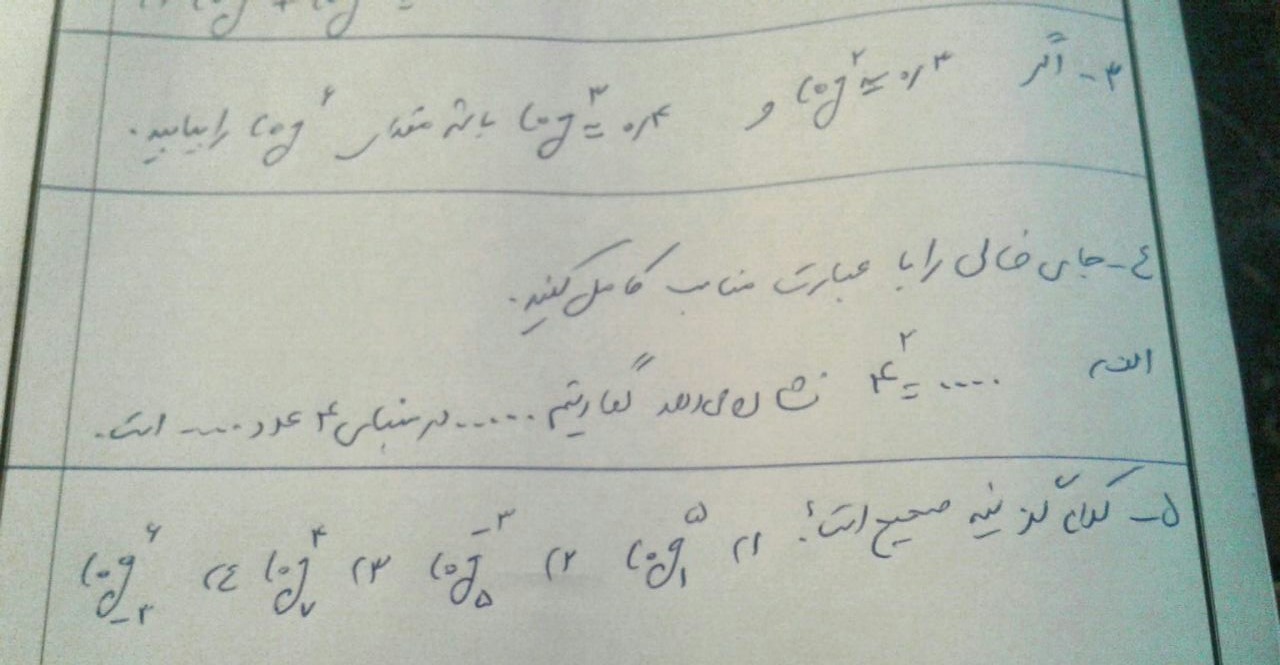 ۳- اگر log۲ ≃ ۰٫۳ و log۳ ≃ ۰٫۴ باشد مقدار log۶ را بیابید.
٤- جای خالی را با عبارت مناسب کامل کنید.
الف ۴^۲ = .... نشان می‌دهد لگاریتم ..... در مبنای ۴ عدد .... است.
۵- کدام گزینه صحیح است؟ ۱) log_۱^۵ ۲) log_۵^-۳ ۳) log_۷^۴ ٤) log_-۲^۶